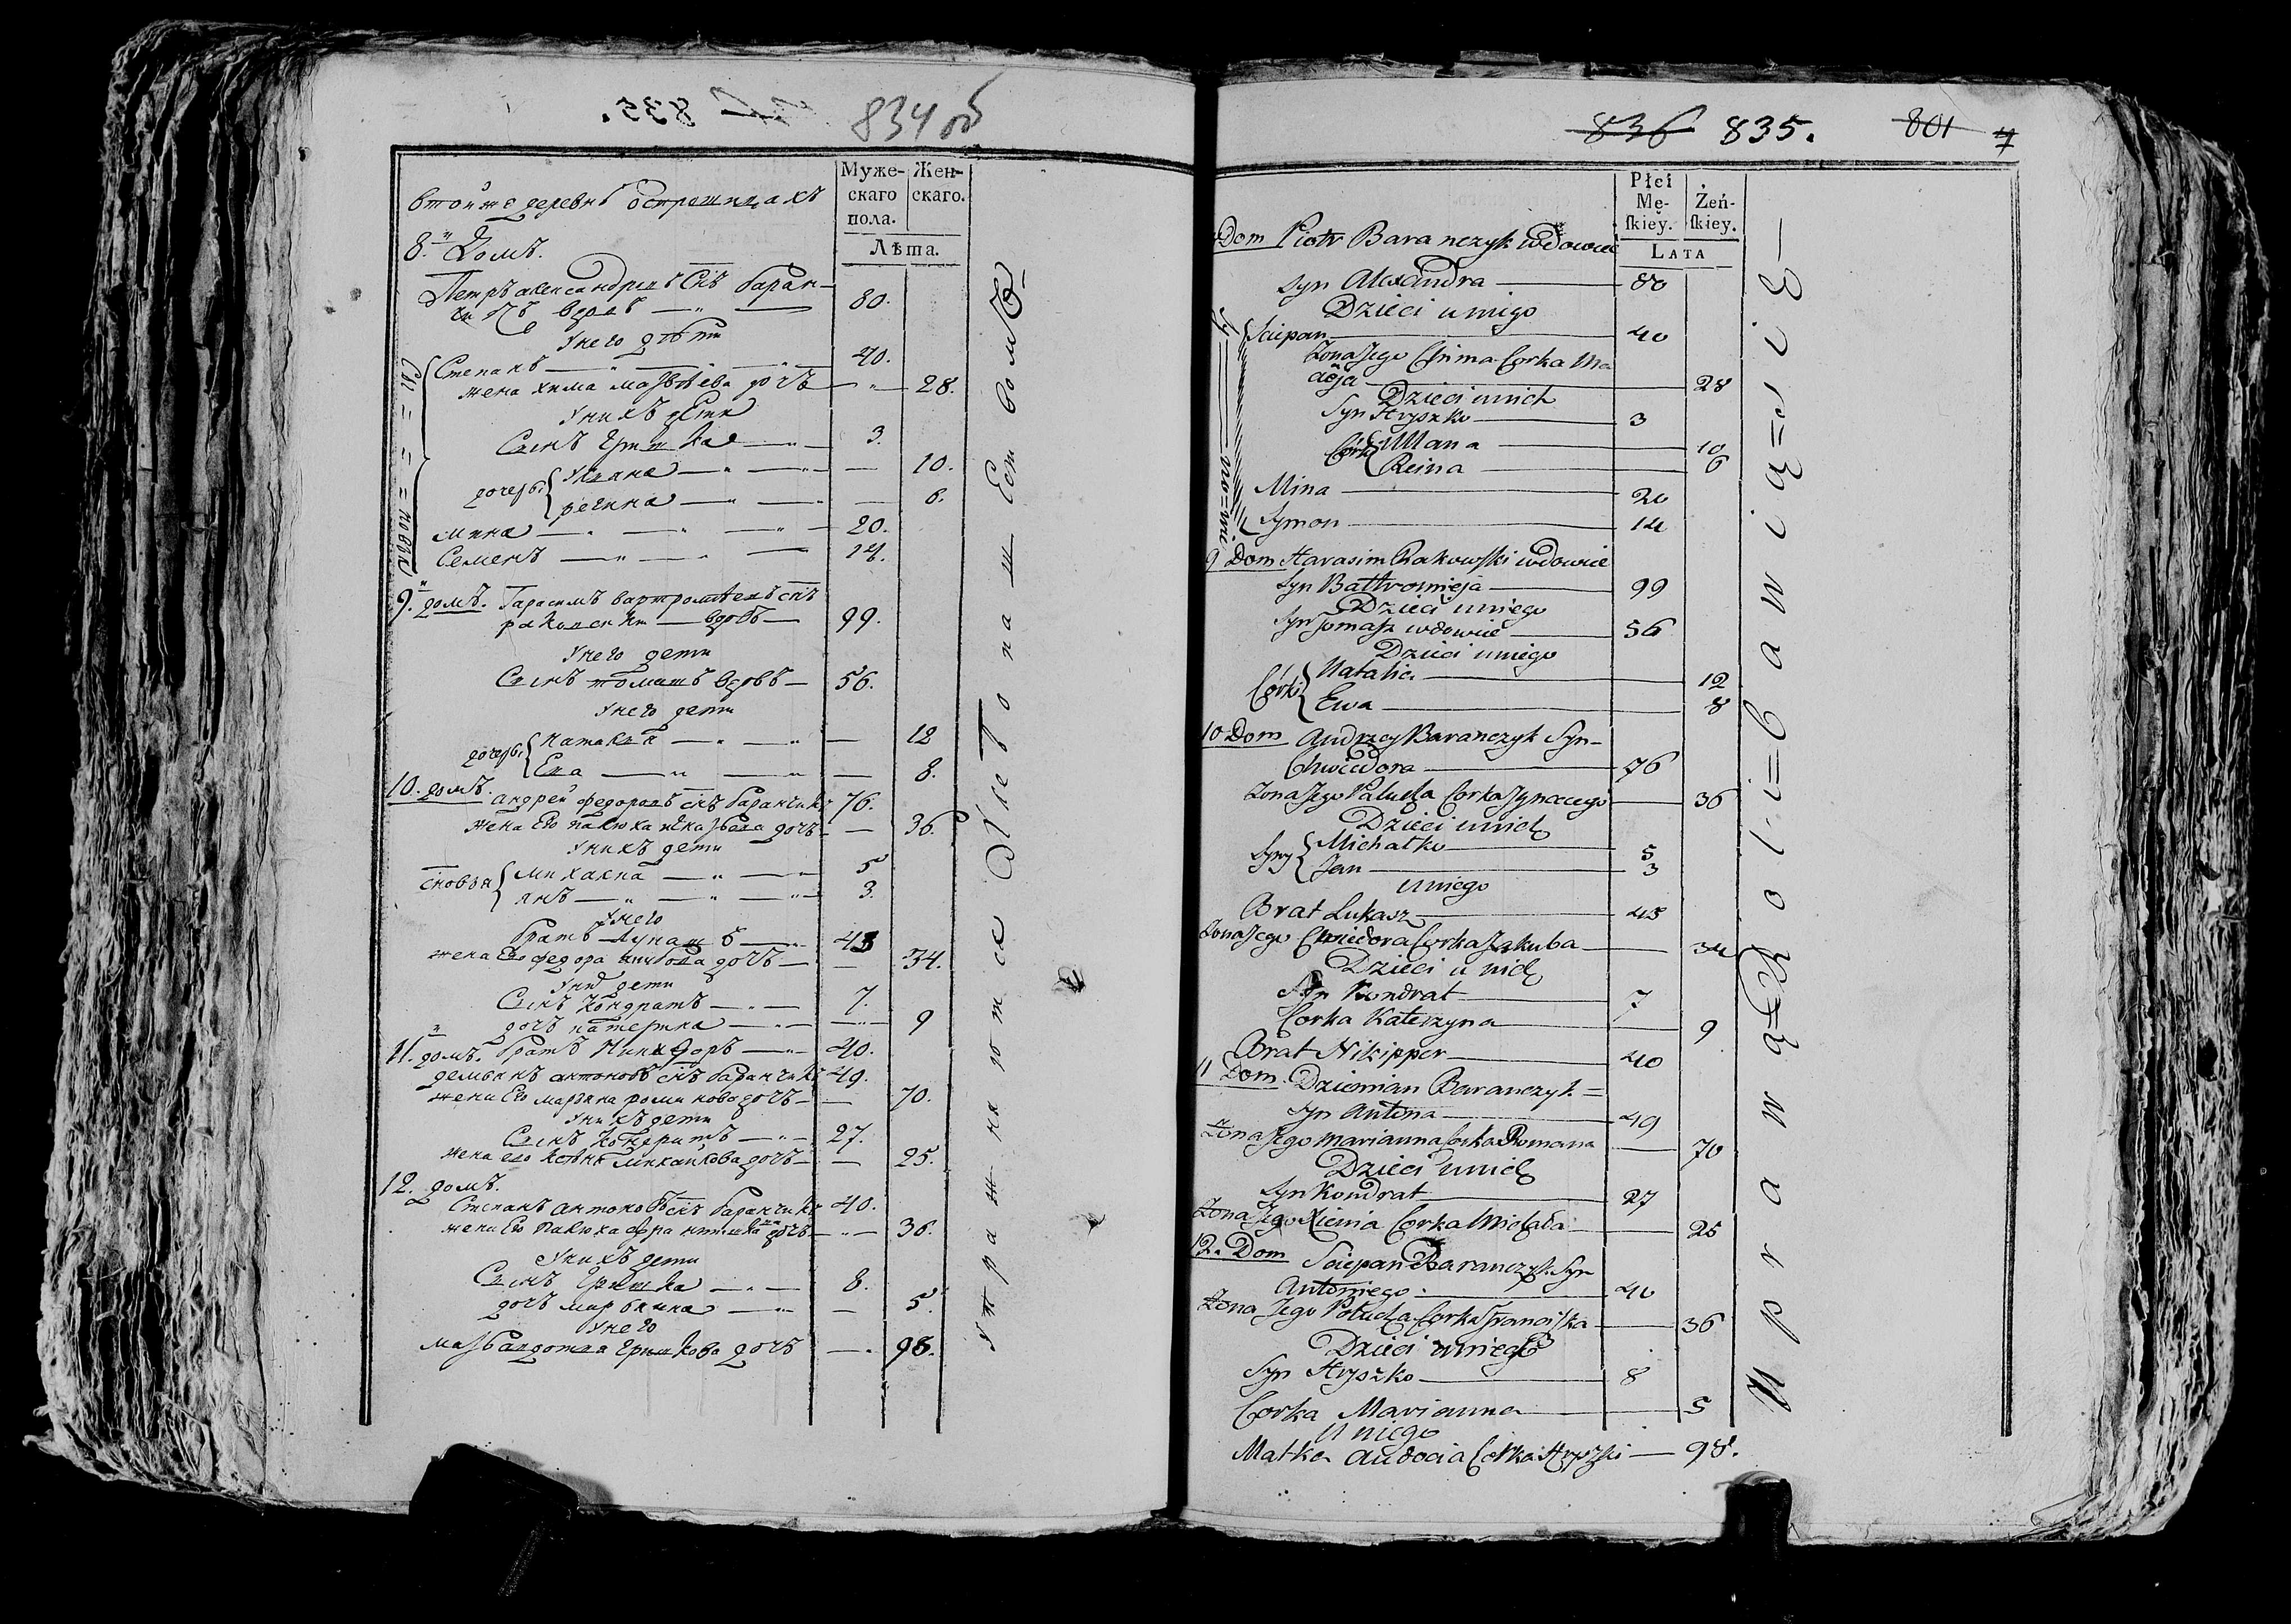 835.
834 об
Муже-
скаго
пола.
Жен-
скаго.
Лѣта.
в той же деревнѣ Острошицахъ
8. Домъ.
Петръ александровъ Снъ Баран-
чикъ вдовъ — 80.
У него дѣти
Степанъ — 40.
жена хима мавѣева дочъ — 28.
У нихъ дети
Сынъ Гришка — 3.
дочери Уляна — 10.
регина — 6.
мина — 20.
Семенъ — 14.
9. домъ. Гарасимъ вартромѣевъ снъ
раковски — вдовъ — 99.
У него дети
Сынъ томашъ вдовъ — 56.
У него дети
дочери Наталия — 12
Ева — 8.
10. домъ.
андрей федоровъ снъ Баранчикъ 76.
жена Его палюха дочъ — 36.
У нихъ дети
сновья михалка — 5
янъ — 3.
У него
братъ лукашъ — 43
жена Его федора дочъ — 34.
У них дети
Сынъ Кондратъ — 7.
дочъ катерина — 9
братъ Никифоръ — 40.
11. домъ.
демьянъ антоновъ снъ баранчикъ 49.
жена Его марьяна романова дочъ — 70.
У нихъ дети
Сынъ Кондратъ — 27.
жена его михайлова дочъ — 25.
12. домъ.
Степанъ антоновъ снъ баранчикъ 40.
жена Его палюха дочъ — 36.
У нихъ дети
Сынъ Гришка — 8.
дочъ марьяна — 5.
У него
мать авдотья Гришкова дочъ — 98.
836 835.
801
Płci
Mę-
skiey.
Żeń-
skiey.
LATA
Dom Piotr Baranczyk wdowiec
Syn Alexandra — 80
Dzieci u niego
Sciepan — 40
Zona Jego Chima Corka Ma
deja — 28
Dzieci u nich
Syn Hryszko — 3
Córki Ullana — 10
Reina — 6
Mina — 20
Symon — 14
Sy=no=wi
9 Dom Harasim Rakowski wdowiec
Syn Battromieja — 99
Dzieci u niego
Syn Tomasz wdowiec — 56
Dzieci u niego
Córki Natalia — 12
Ewa — 8
10 Dom Andrzey Baranczyk Syn-
Chwiedora — 76
Zona Jego Palucha Corka Ignacego — 36
Dzieci u nich
Syny Michałko — 5
Jan — 3
u niego
Brat Lukasz — 43
Zona Jego Chwiedora Corka Jakuba — 34
Dzieci u nich
Syn Kondrat — 7
Corka Katerzyna — 9
Brat Nikipper — 40
11 Dom. Dziemian Baranczyk =
Syn Antona — 49
Zona Jego Marianna Corka Romana — 70
Dzieci u nich
Syn Kondrat — 27
Zona Jego Xienia Corka Michała — 25
12. Dom Sciepan Baranczyk Syn
Antoniego — 40
Zona Jego Palucha Corka Franciszka — 36
Dzieci u niego
Syn Hryszko — 8
Corka Marianna — 5
U niego
Matka Audocia Corka Hryszki — 98.